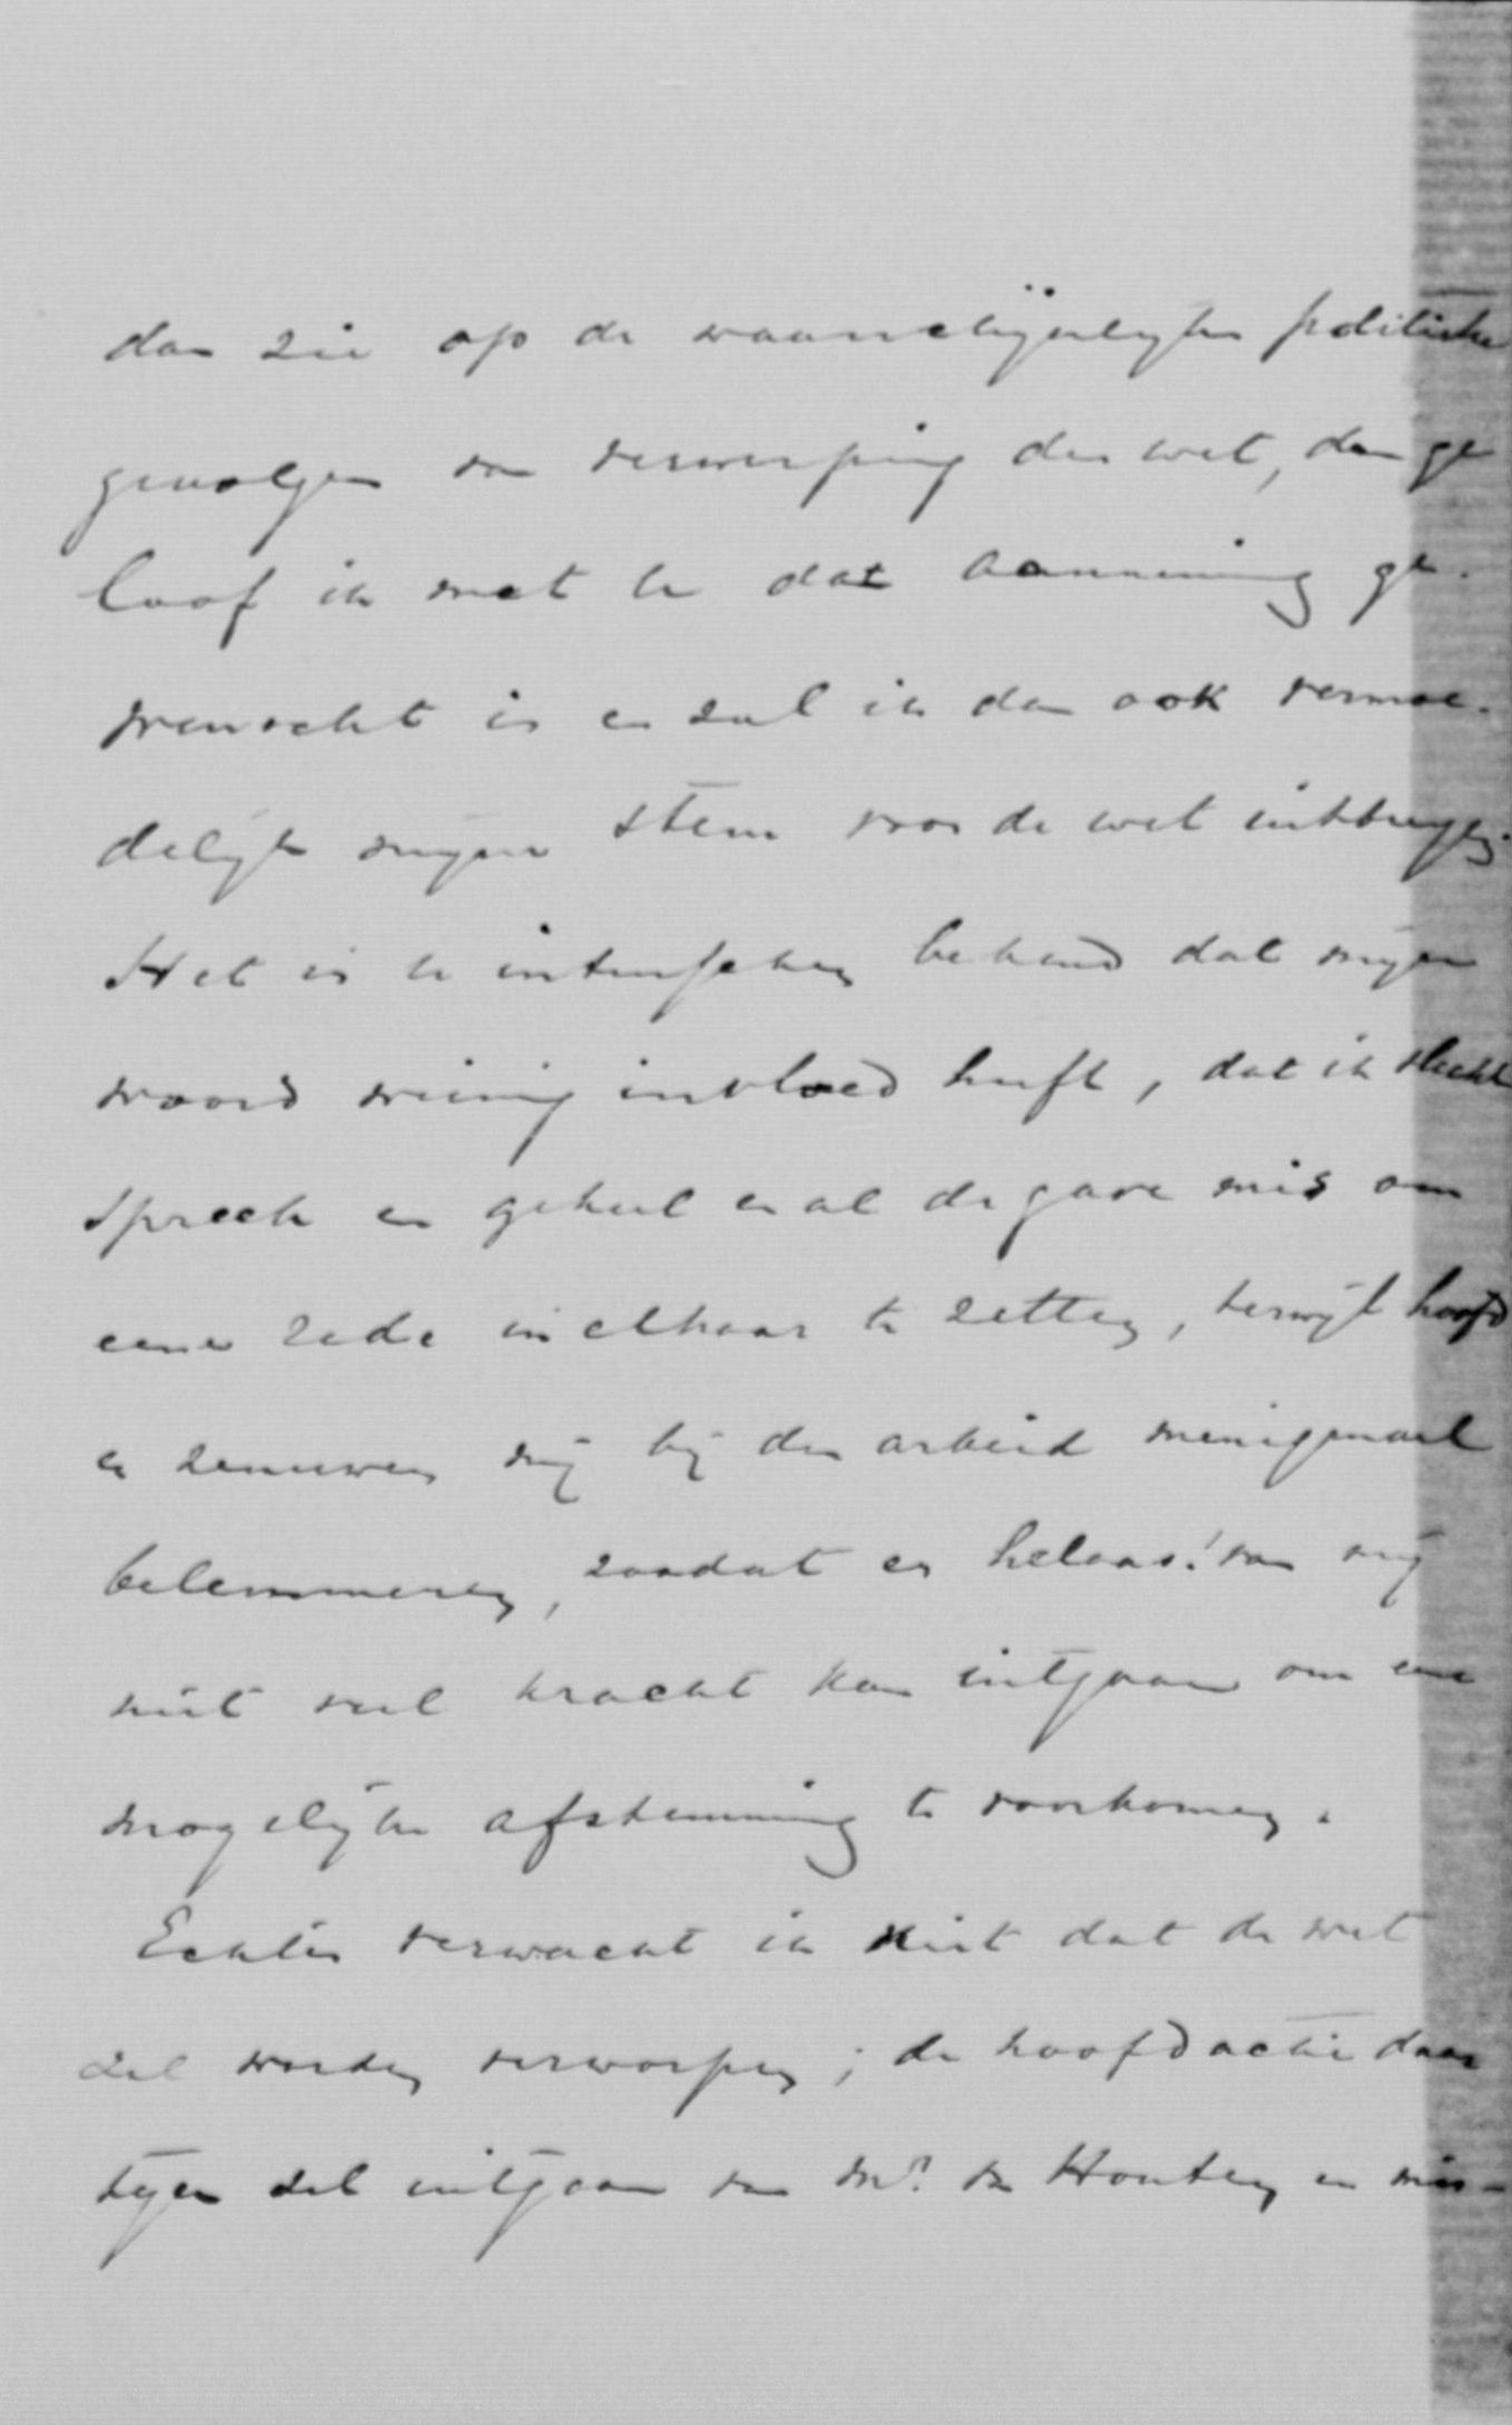 dan zie op de waarschijnlijke politieke
gevolgen van verwerping der wet, dan ge
loof ik met U dat aanneming ge-
wenscht is en zal ik dan ook vermoe-
delijk mijne stem voor de wet uitbrengen.
Het is U intusschen bekend dat mijn
woord weinig invloed heeft, dat ik slecht
spreek en geheel en al de gave mis om
eene rede inelkaar te zetten, terwijl hoofd
en zenuwen mij bij den arbeid menigmaal
belemmeren, zoodat er helaas! van mij
niet veel kracht kan uitgaan om eene
mogelijke afstemming te voorkomen.
Echter verwacht ik niet dat de wet
zal worden verworpen; de hoofdactie daar
tegen zal uitgaan van Mr. van Houten en mis-